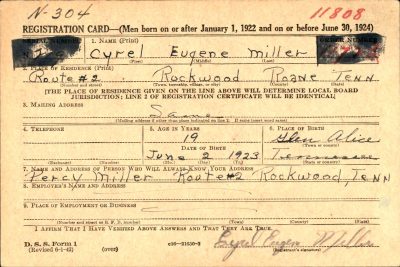 N-304
11808
REGISTRATION CARD—(Men born on or after January 1, 1922 and on or before June 30, 1924)
1. NAME (Print)
ORDER NUMBER
Cyrel Eugene Miller
(First) (Middle) (Last)
2. PLACE OF RESIDENCE (Print)
Route #2 Rockwood Roane Tenn
(Number and street) (Town, township, village, or city) (County) (State)
[THE PLACE OF RESIDENCE GIVEN ON THE LINE ABOVE WILL DETERMINE LOCAL BOARD
JURISDICTION; LINE 2 OF REGISTRATION CERTIFICATE WILL BE IDENTICAL]
3. MAILING ADDRESS
Same
[Mailing address if other than place indicated on line 2. If same insert word same]
4. TELEPHONE
5. AGE IN YEARS
6. PLACE OF BIRTH
19
Glen Alice
DATE OF BIRTH
(Town or county)
June 2 1923
Tennessee
(Exchange) (Number) (Mo.) (Day) (Yr.) (State or country)
7. NAME AND ADDRESS OF PERSON WHO WILL ALWAYS KNOW YOUR ADDRESS
Percy Miller Route #2 Rockwood, Tenn
8. EMPLOYER'S NAME AND ADDRESS
9. PLACE OF EMPLOYMENT OR BUSINESS
(Number and street or R. F. D. number) (Town) (County) (State)
I AFFIRM THAT I HAVE VERIFIED ABOVE ANSWERS AND THAT THEY ARE TRUE.
D. S. S. Form 1
(Revised 6-9-42) (over)
Cyrel Eugene Miller
(Registrant's signature)